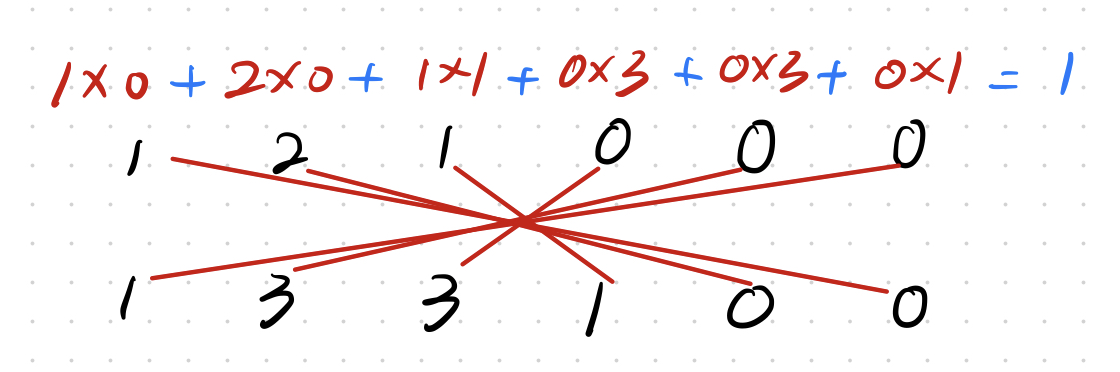 1×0 + 2×0 + 1×1 + 0×3 + 0×3 + 0×1 = 1
1 2 1 0 0 0
1 3 3 1 0 0